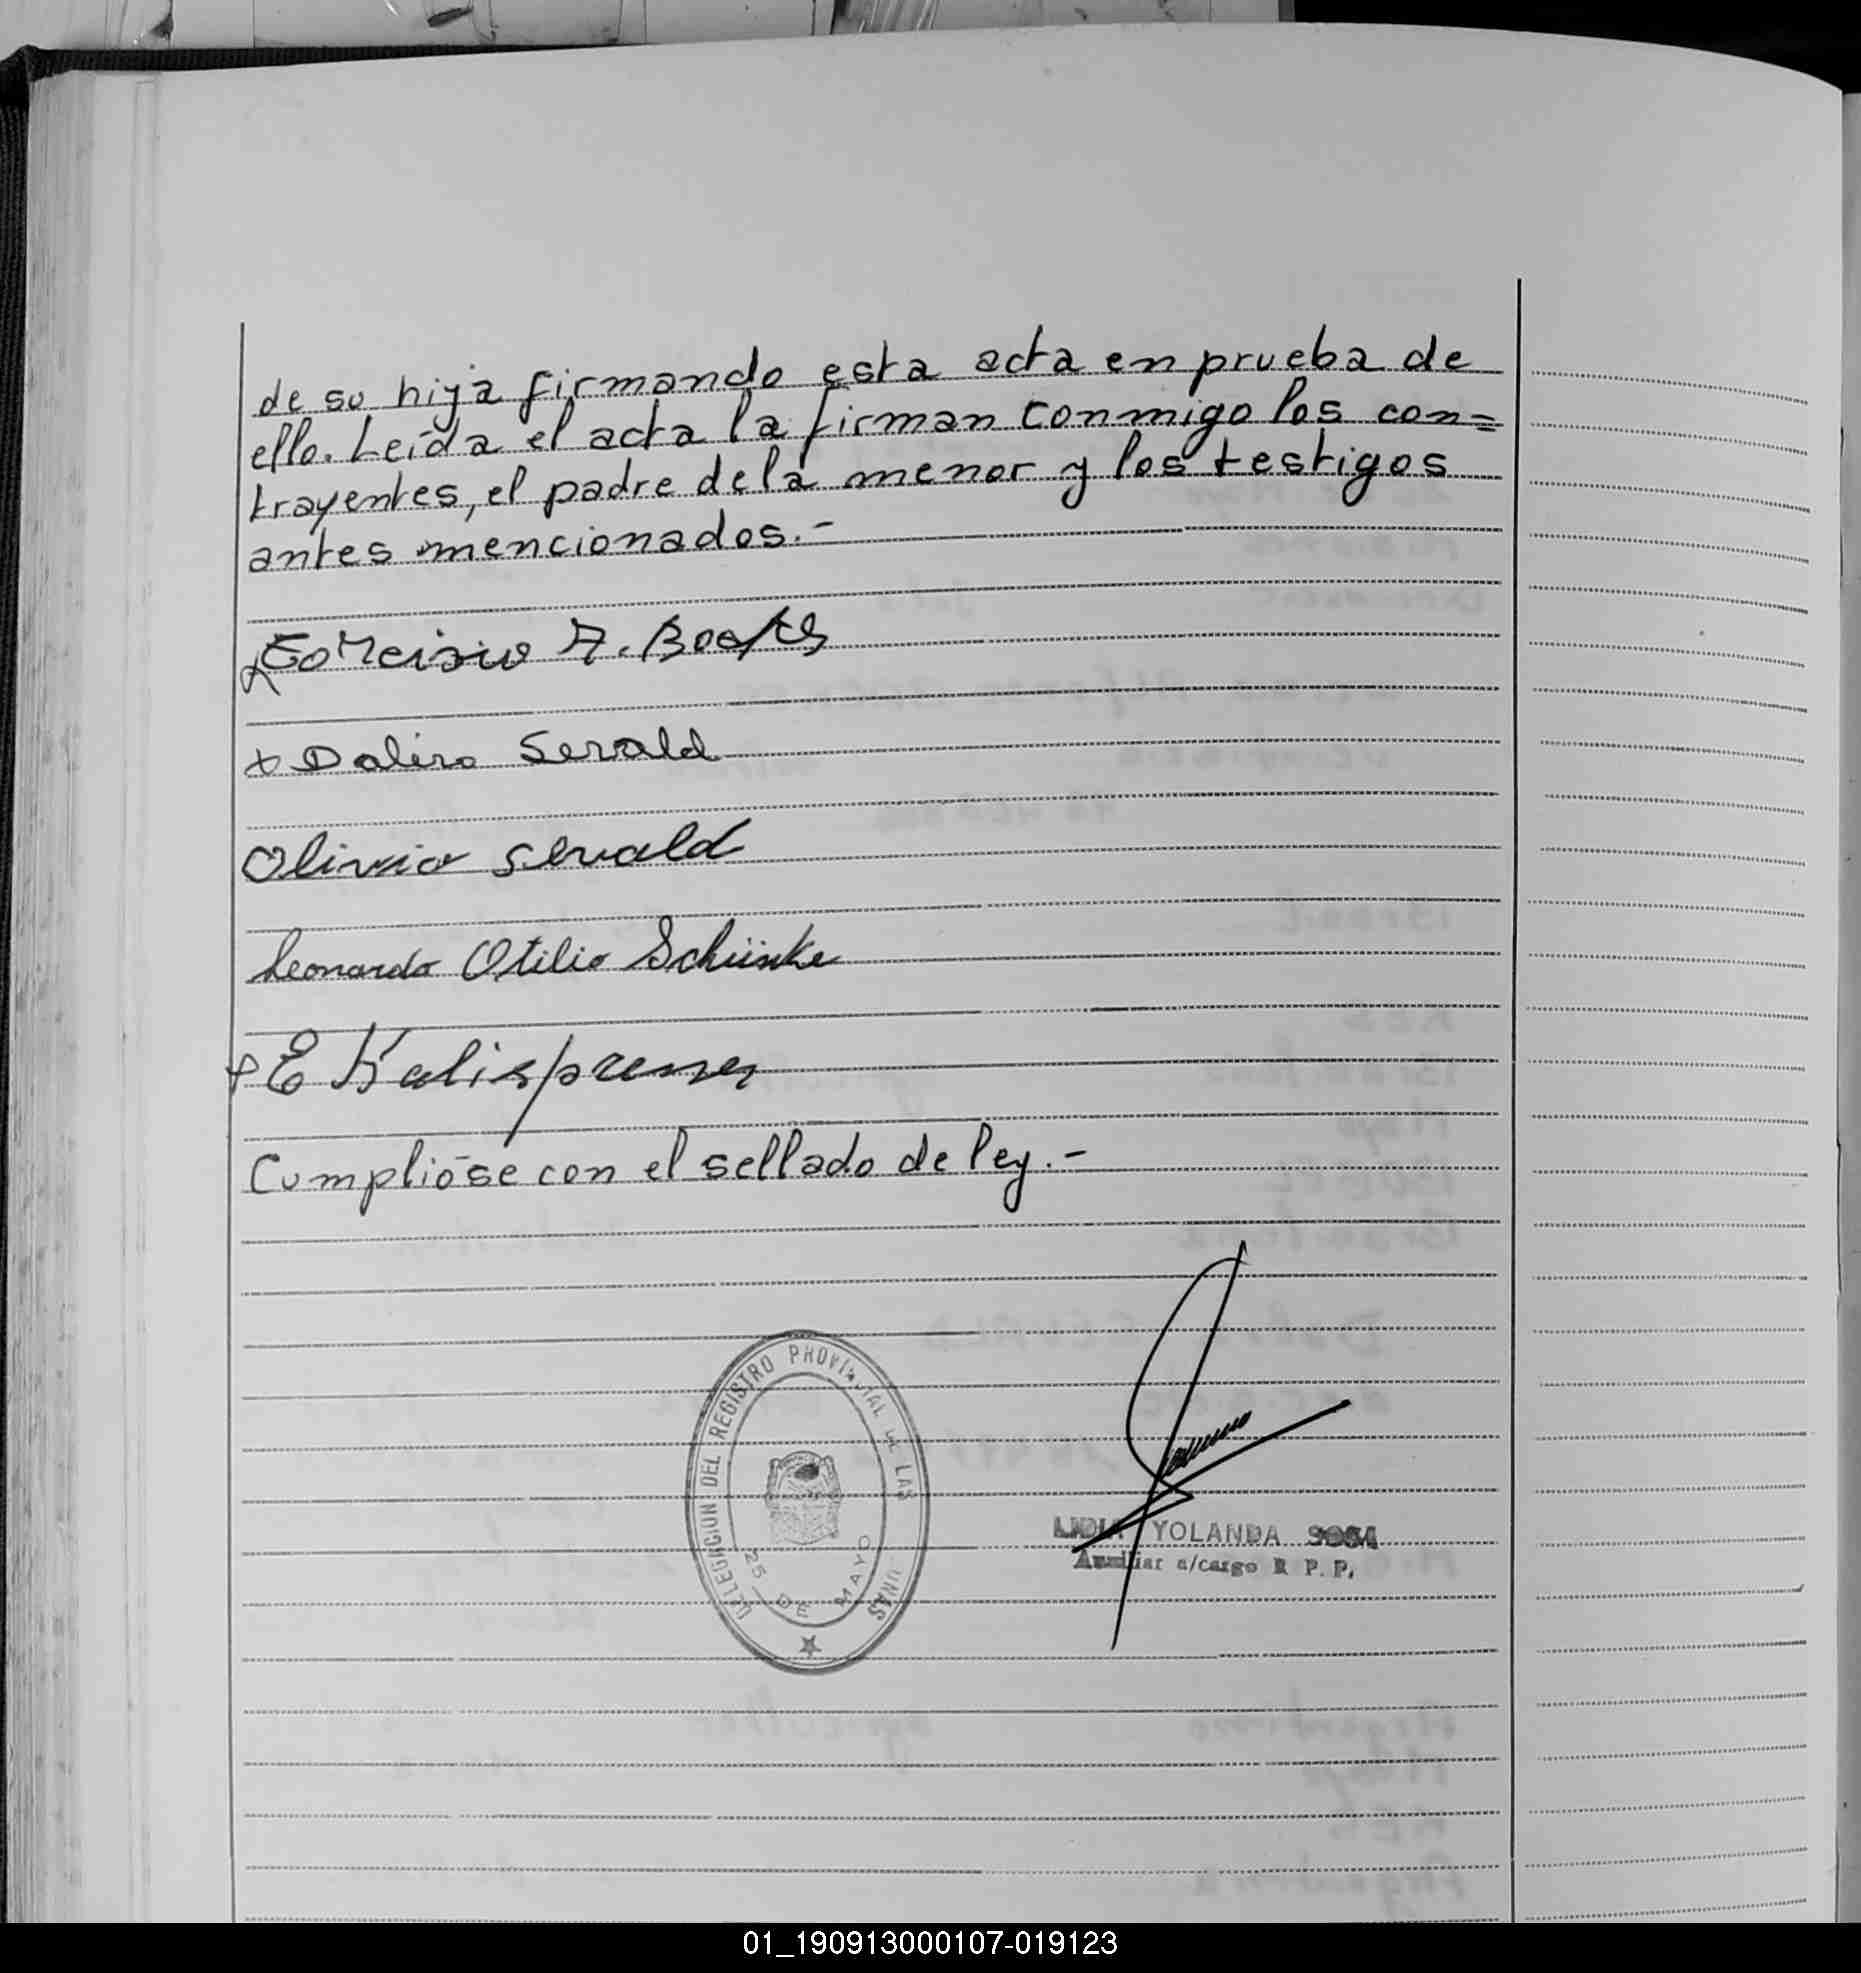 de su hija firmando esta acta en prueba de
ello. Leída el acta la firman conmigo los con=
trayentes, el padre de la menor y los testigos
antes mencionados.-
A.
Sewald
Olivio Sewald
Leonardo Otilio Schünke
E
Cumplióse con el sellado de ley.-
DELEGACION DEL REGISTRO PROVINCIAL DE LAS PERSONAS
25 DE MAYO
LIDIA YOLANDA SOSA
Auxiliar a/cargo R. P. P.
01_190913000107-019123